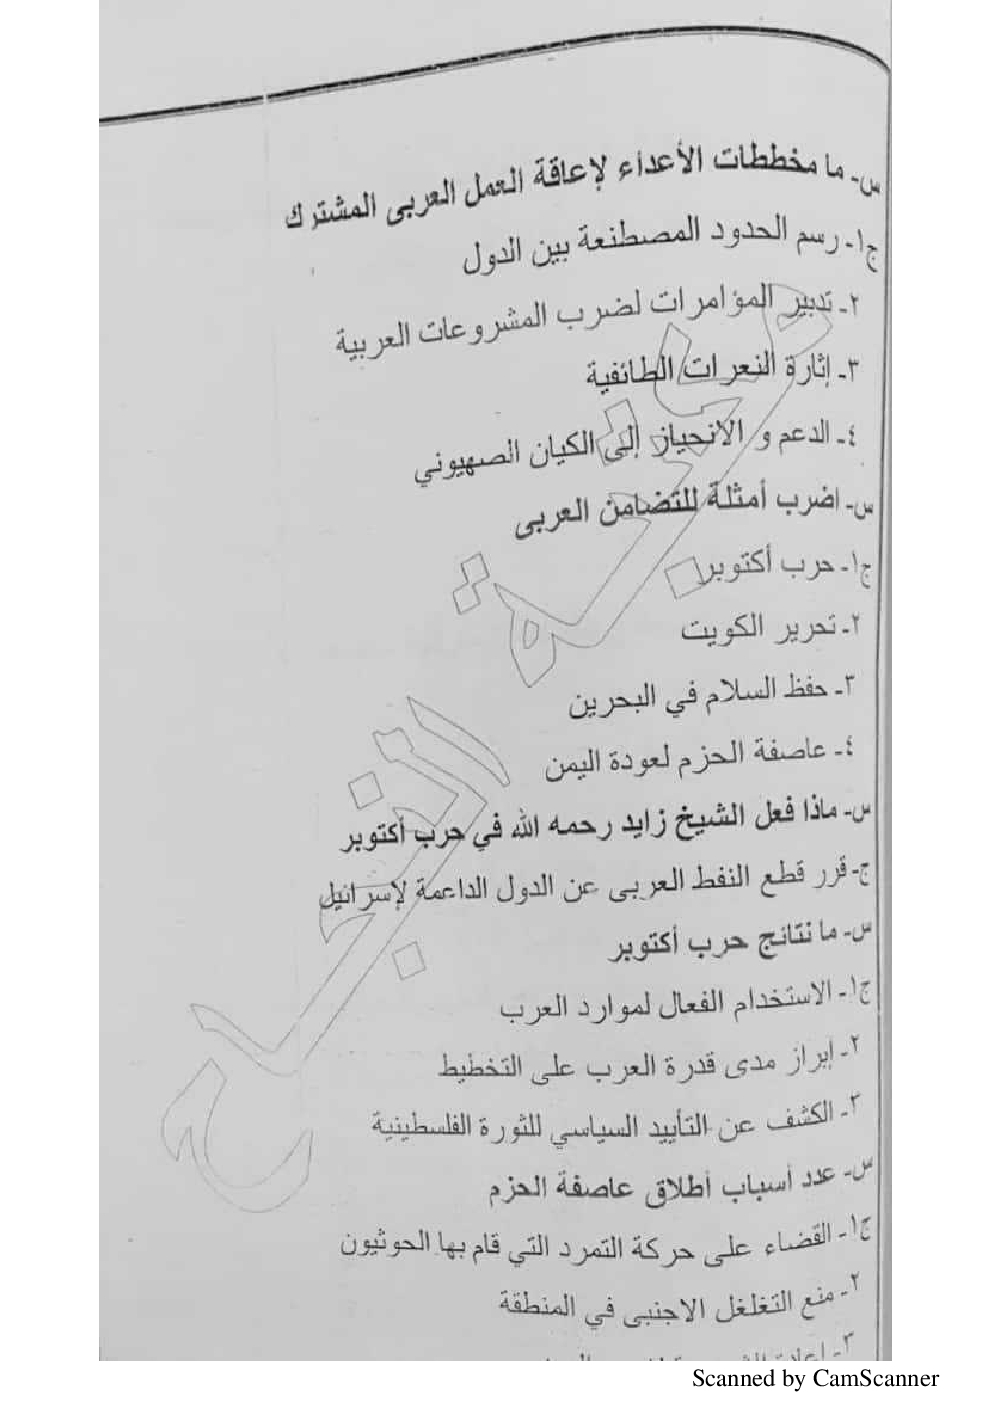 س- ما مخططات الأعداء لإعاقة العمل العربى المشترك
ج١- رسم الحدود المصطنعة بين الدول
٢- تدبير المؤامرات لضرب المشروعات العربية
٣- إثارة النعرات الطائفية
٤- الدعم و الانحياز إلى الكيان الصهيوني
س- اضرب أمثلة للتضامن العربى
ج١- حرب أكتوبر
٢- تحرير الكويت
٣- حفظ السلام في البحرين
٤- عاصفة الحزم لعودة اليمن
س- ماذا فعل الشيخ زايد رحمه الله في حرب أكتوبر
ج- قرر قطع النفط العربى عن الدول الداعمة لإسرائيل
س- ما نتائج حرب أكتوبر
ج١- الاستخدام الفعال لموارد العرب
٢- إبراز مدى قدرة العرب على التخطيط
٣- الكشف عن التأييد السياسي للثورة الفلسطينية
س- عدد أسباب أطلاق عاصفة الحزم
ج١- القضاء على حركة التمرد التي قام بها الحوثيون
٢- منع التغلغل الاجنبى في المنطقة
٣-
Scanned by CamScanner